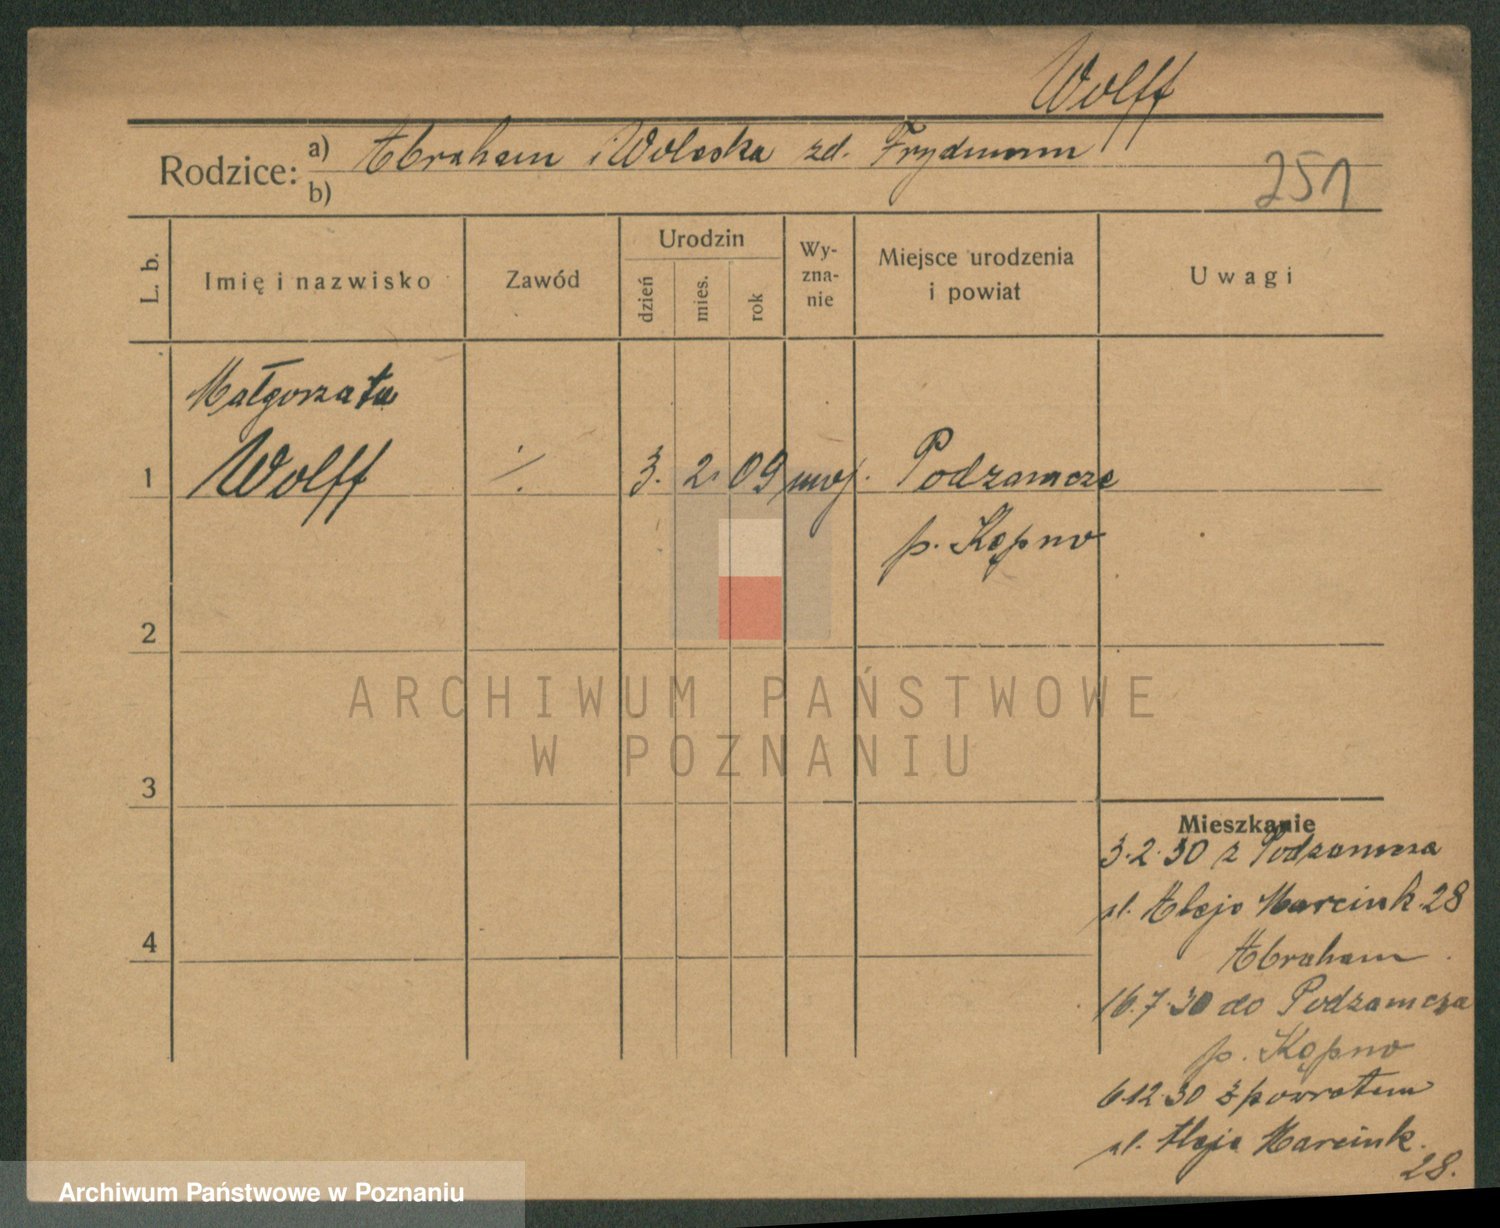 Wolff
Rodzice: a) Abraham i Woleska zd. Frydmann
b)
251
L. b.
Imię i nazwisko
Zawód
Urodzin
dzień
mies.
rok
Wy-
zna-
nie
Miejsce urodzenia
i powiat
Uwagi
Małgorzata
1 Wolff ./. 3. 2. 09 Podzamcze
p. Kępno
2
3
4
Mieszkanie
3.2.30 z Podzamcza
ul. Aleje Marcink. 28
Abraham
16.7.30 do Podzamcza
p. Kępno
6.12.30 z powrotem
ul. Aleje Marcink.
28.
ARCHIWUM PAŃSTWOWE
W POZNANIU
Archiwum Państwowe w Poznaniu